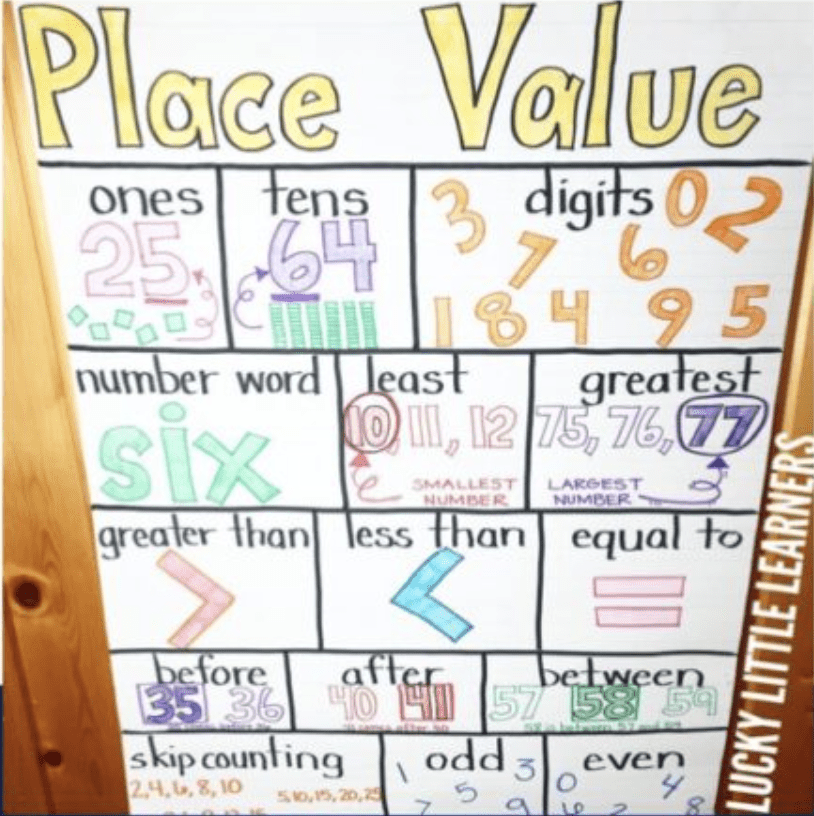 Place Value
ones
25
tens
64
digits
3 0 2
7 6
1 8 4 9 5
number word
six
least
10, 11, 12
SMALLEST
NUMBER
greatest
75, 76, 77
LARGEST
NUMBER
greater than
>
less than
<
equal to
=
before
35 36
after
40 41
41 comes after 40
between
57 58 59
58 is between 57 and 59
skip counting
2,4,6,8,10
5,10,15,20,25
odd
1 3
5
7 9
even
0 4
6 2 8
LUCKY LITTLE LEARNERS